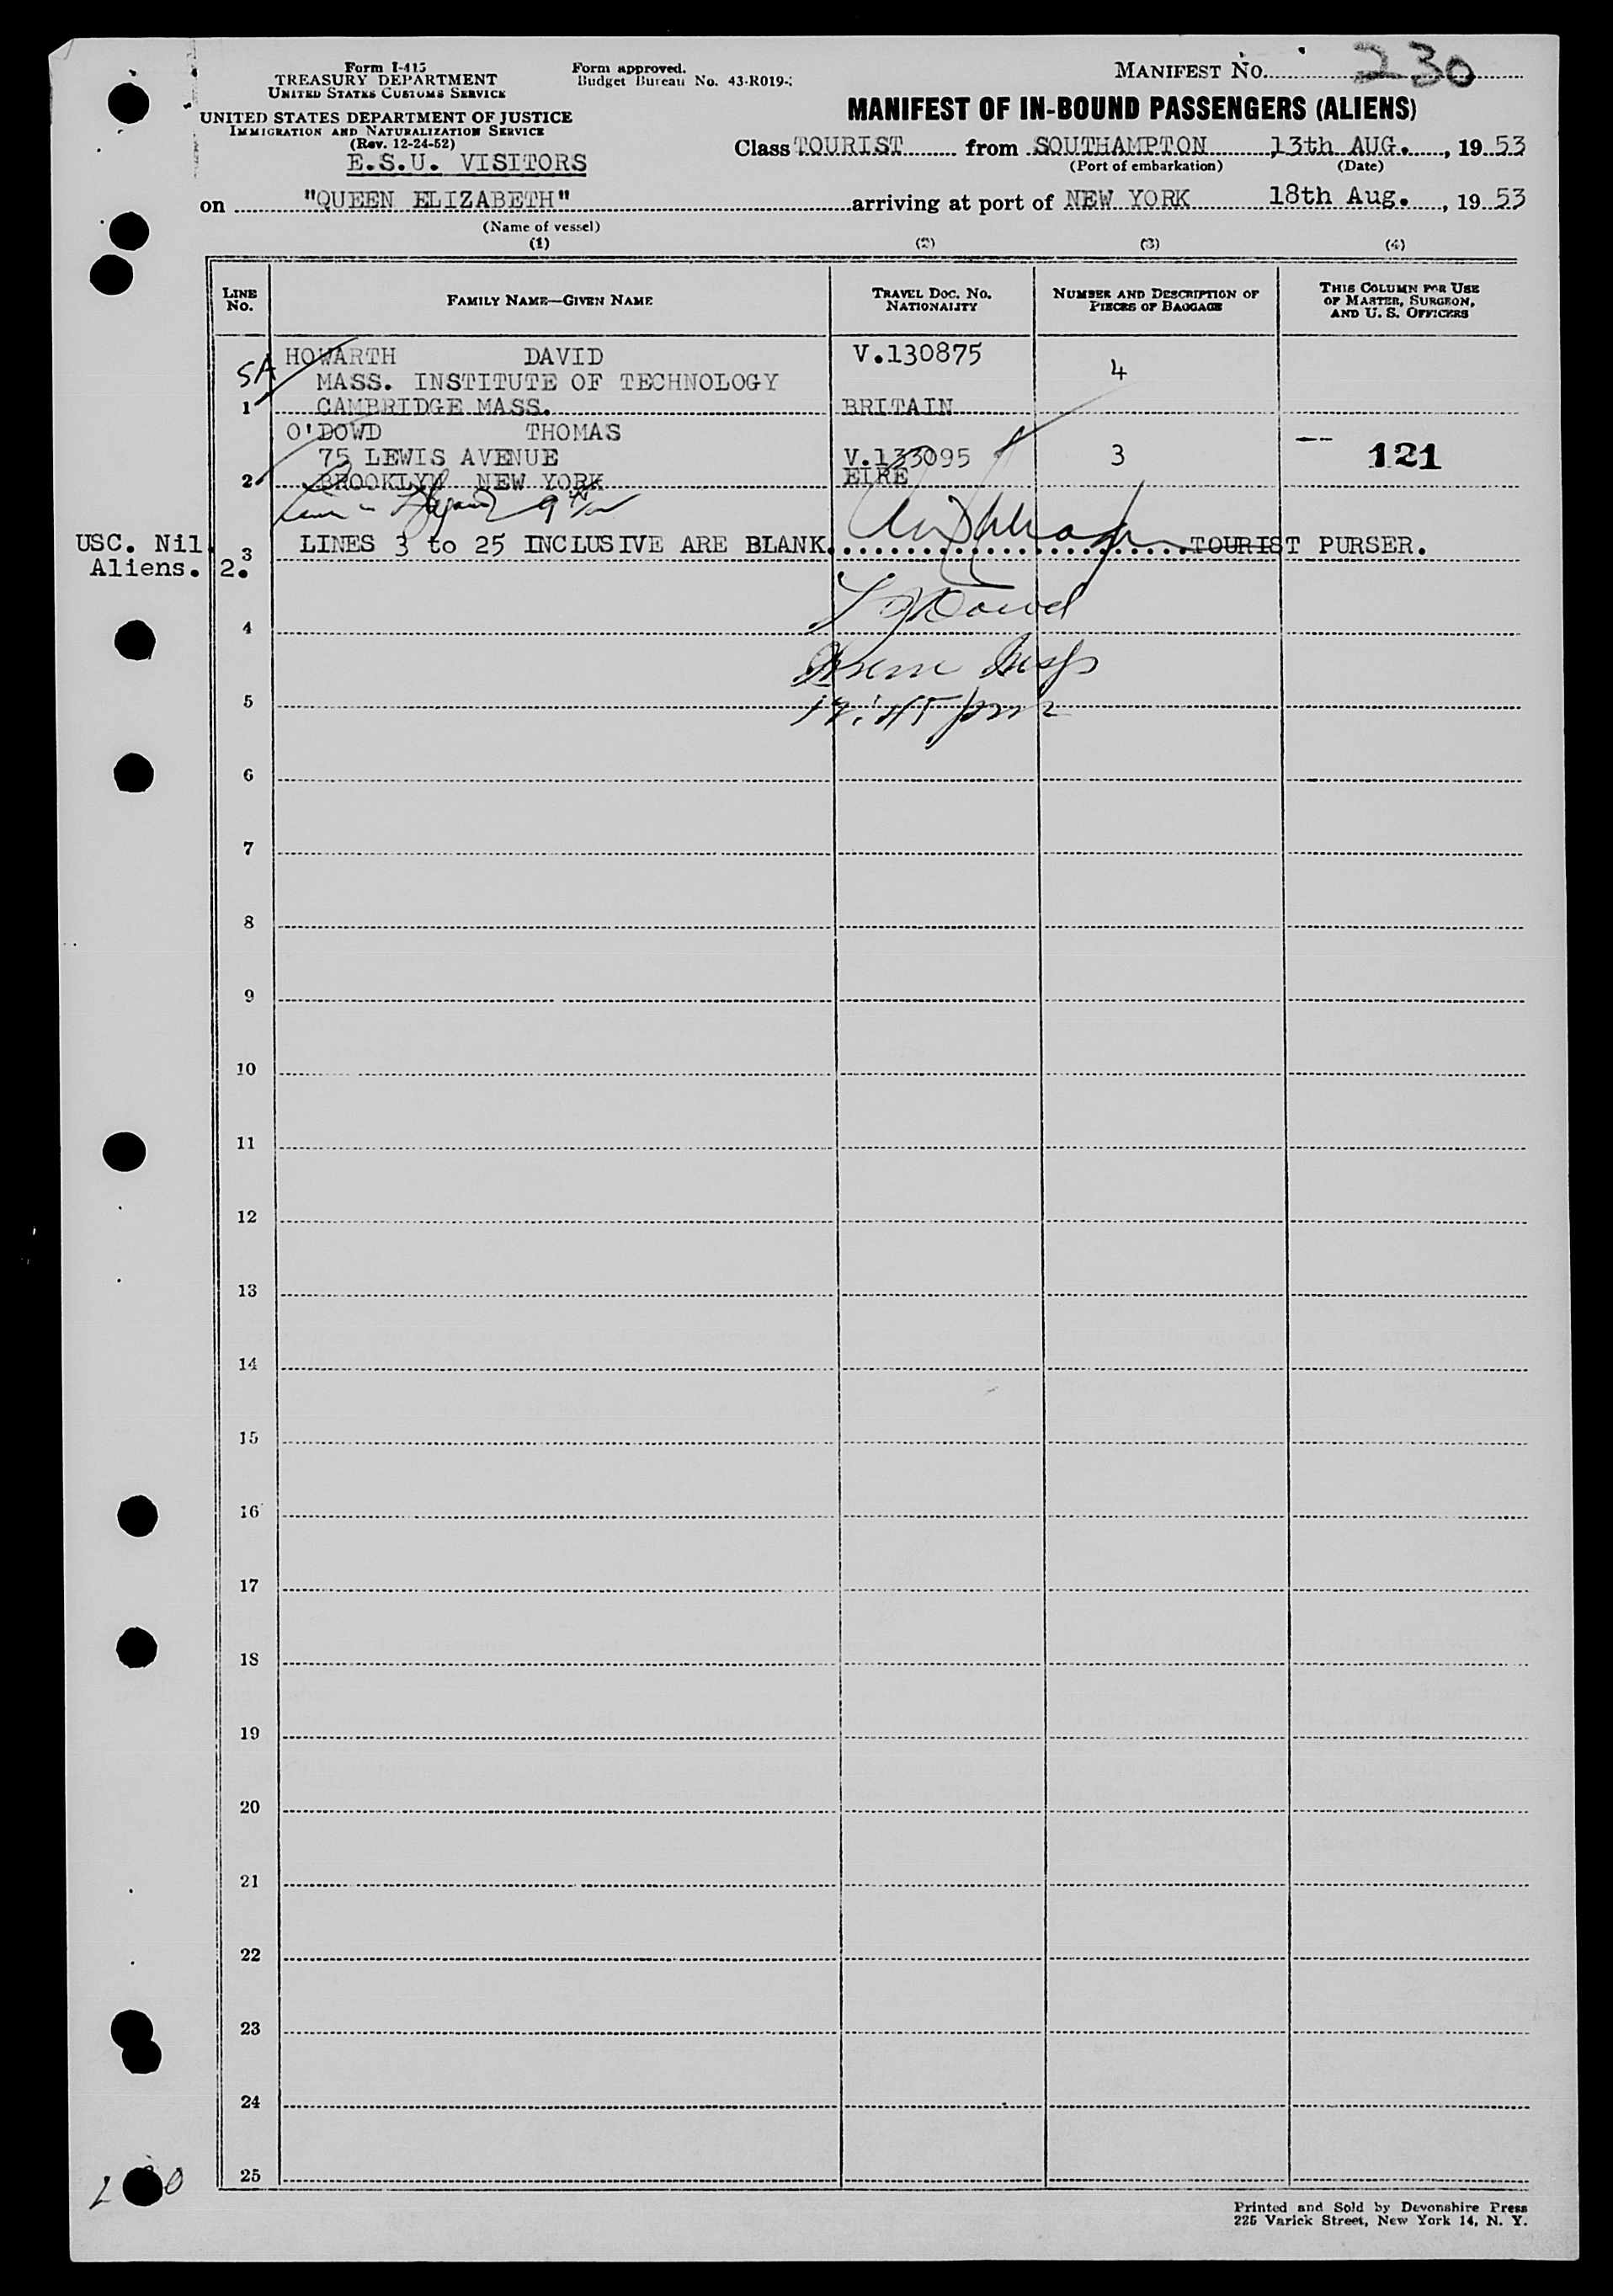 Form I-415
TREASURY DEPARTMENT
UNITED STATES CUSTOMS SERVICE
Form approved.
Budget Bureau No. 43-R019-
MANIFEST NO. 230
UNITED STATES DEPARTMENT OF JUSTICE
IMMIGRATION AND NATURALIZATION SERVICE
(Rev. 12-24-52)
E.S.U. VISITORS
MANIFEST OF IN-BOUND PASSENGERS (ALIENS)
Class TOURIST from SOUTHAMPTON 13th AUG. , 19 53
(Port of embarkation) (Date)
on "QUEEN ELIZABETH" arriving at port of NEW YORK 18th Aug. , 19 53
(Name of vessel)
(1) (2) (3) (4)
LINE NO. FAMILY NAME—GIVEN NAME TRAVEL DOC. NO. NATIONALITY NUMBER AND DESCRIPTION OF PIECES OF BAGGAGE THIS COLUMN FOR USE OF MASTER, SURGEON, AND U. S. OFFICERS
SA HOWARTH DAVID V.130875 4
MASS. INSTITUTE OF TECHNOLOGY
1 CAMBRIDGE MASS. BRITAIN
O'DOWD THOMAS
75 LEWIS AVENUE V.133095 3 121
2 BROOKLYN NEW YORK EIRE
USC. Nil. 3 LINES 3 to 25 INCLUSIVE ARE BLANK. TOURIST PURSER.
Aliens. 2.
4
5
12:45 pm
6
7
8
9
10
11
12
13
14
15
16
17
18
19
20
21
22
23
24
25
Printed and Sold by Devonshire Press
225 Varick Street, New York 14, N. Y.